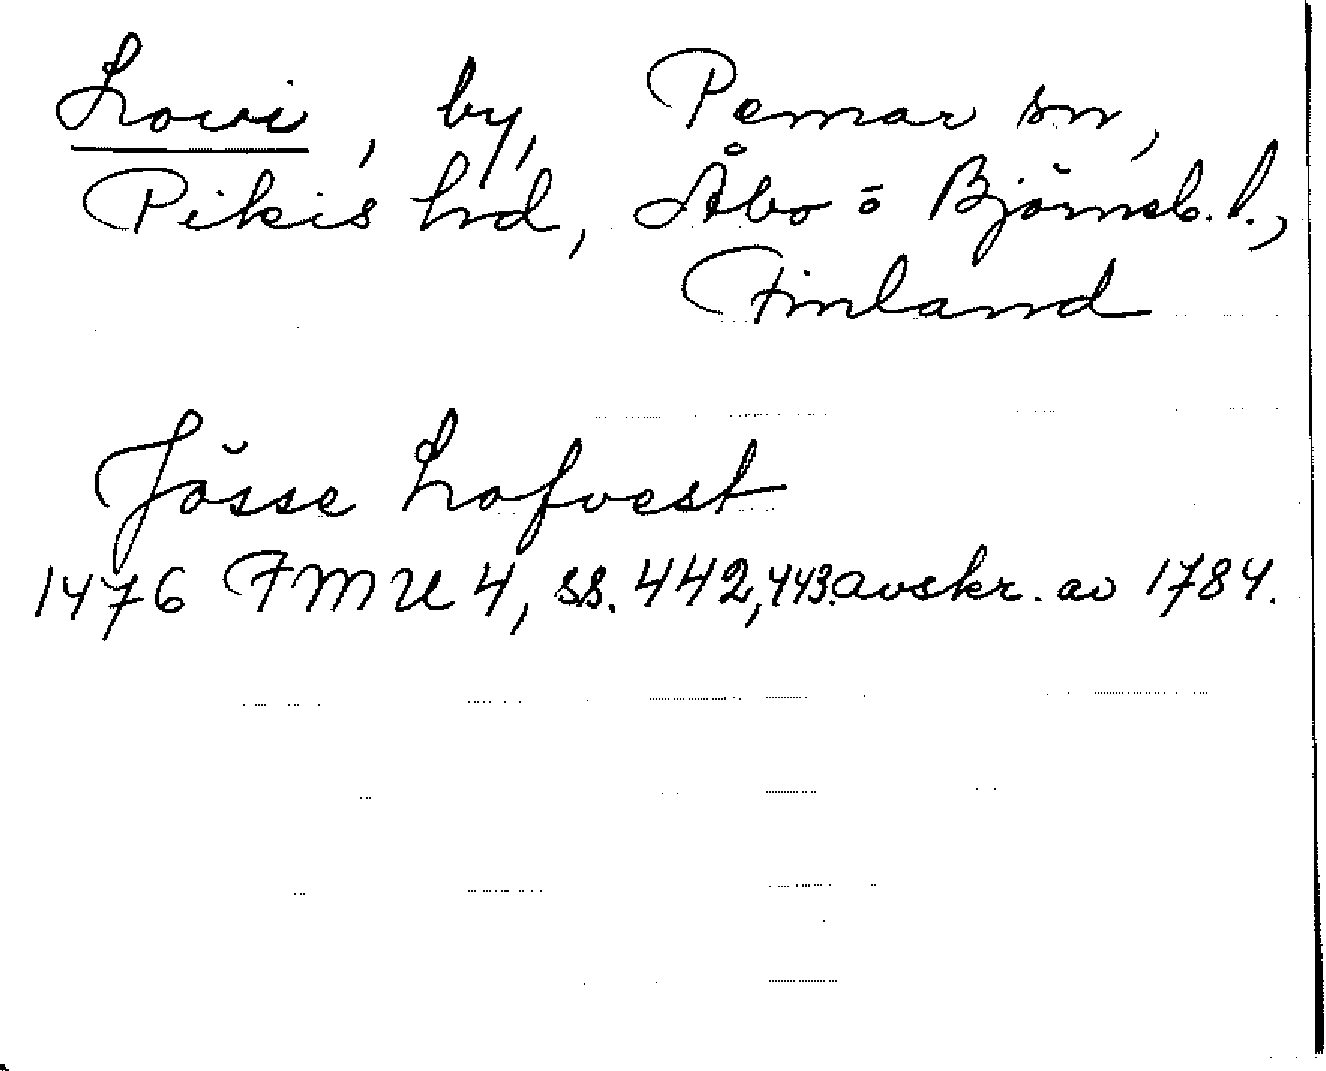 Lowi, by, Pemar sn,
Pikis hrd, Åbo o Björneb. l.,
Finland
Jösse Lofvest
1476 FMU 4, ss. 442, 443. avskr. av 1784.